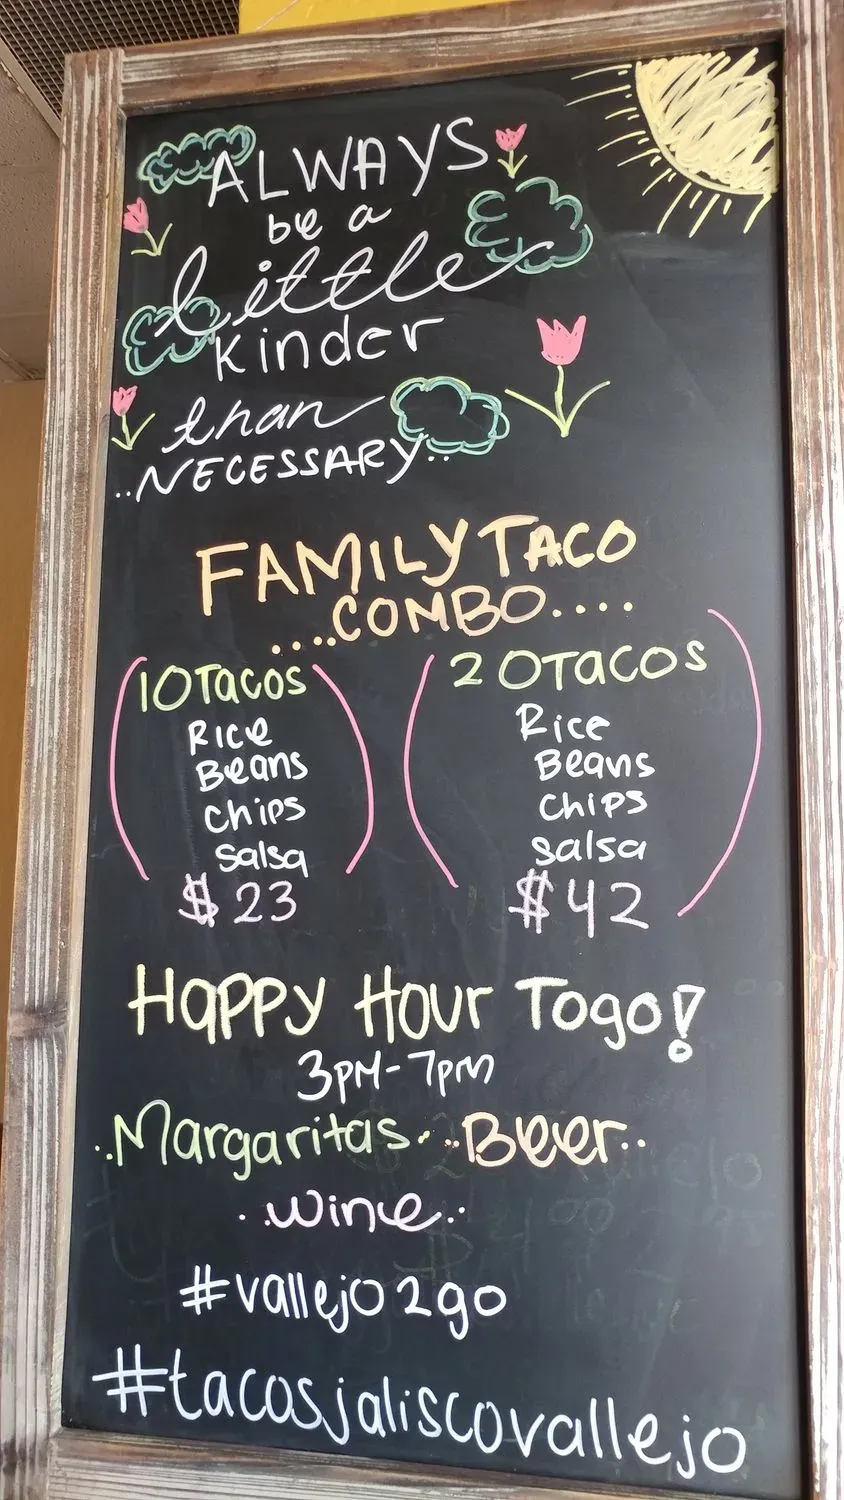 ALWAYS
be a
little
kinder
than
..NECESSARY..
FAMILY TACO
....COMBO....
10 Tacos
Rice
Beans
Chips
Salsa
$23
20 Tacos
Rice
Beans
Chips
Salsa
$42
Happy Hour Togo!
3pM-7pm
..Margaritas.. ..Beer..
..wine..
#vallejo2go
#tacosjaliscovallejo